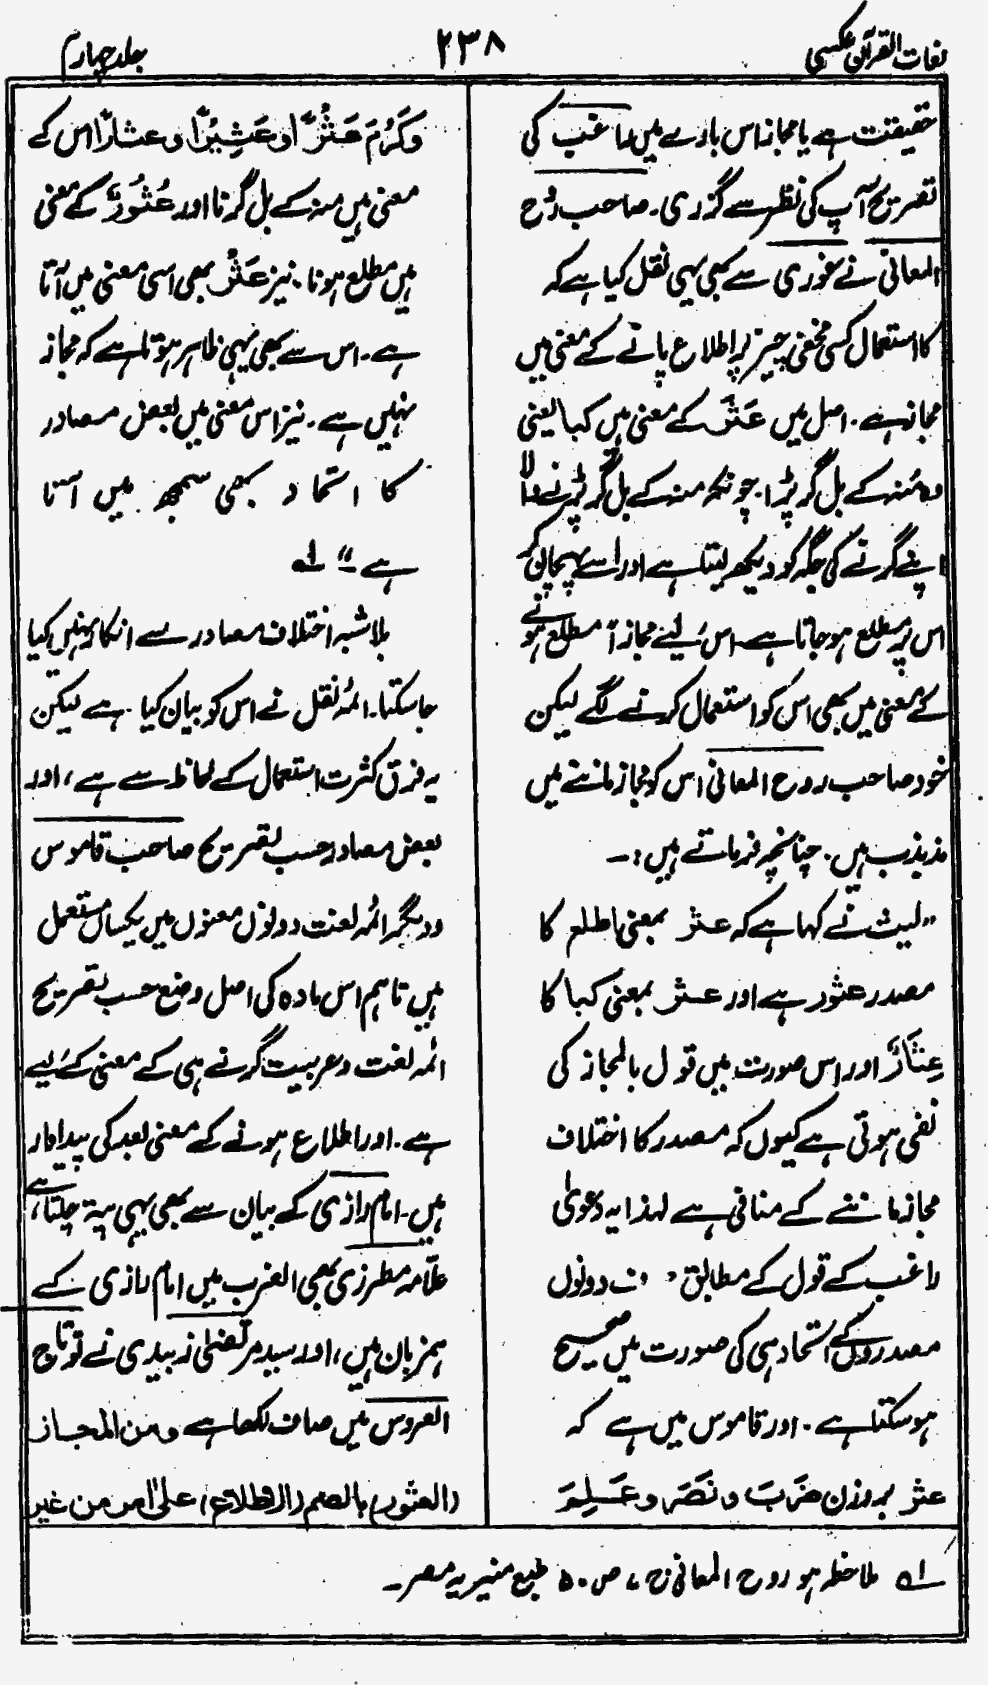 لغات القرآن عکسی
۲۳۸
جلد چہارم
حقیقت ہے یا مجاز اس بارے میں راغب کی
تصریح آپ کی نظر سے گزری۔ صاحب روح
المعانی نے غوری سے بھی یہی نقل کیا ہے کہ
کا استعمال کسی مخفی چیز پر اطلاع پانے کے معنی میں
مجاز ہے۔ اصل میں عَثَرَ کے معنی ہیں کبا یعنی
وہ مُنہ کے بل گر پڑا۔ چونکہ منہ کے بل گر پڑنے والا
اپنے گرنے کی جگہ کو دیکھ لیتا ہے اور اسے پہچان کر
اس پر مطلع ہو جاتا ہے۔ اس لیے مجازاً مطلع ہونے
کے معنی میں بھی اس کو استعمال کرنے لگے لیکن
خود صاحب روح المعانی اس کو مجاز ماننے میں
مذبذب ہیں۔ چنانچہ فرماتے ہیں:۔
"لیث نے کہا ہے کہ عثر بمعنی اطلع کا
مصدر عثور ہے اور عثر بمعنی کبا کا
عِثَارٌ اور اس صورت میں قول بالمجاز کی
نفی ہوتی ہے کیوں کہ مصدر کا اختلاف
مجاز ماننے کے منافی ہے لہذا یہ دعویٰ
راغب کے قول کے مطابق دونوں
مصدروں کے اتحاد ہی کی صورت میں صحیح
ہو سکتا ہے۔ اور قاموس میں ہے کہ
عثر بروزن ضَرَبَ و نَصَرَ و عَلِمَ
وَكَرُمَ عَثْرًا و عَثِيرًا و عثارًا اس کے
معنی ہیں منہ کے بل گرنا اور عُثُورٌ کے معنی
ہیں مطلع ہونا۔ نیز عَثْرٌ بھی اسی معنی میں آتا
ہے۔ اس سے بھی یہی ظاہر ہوتا ہے کہ مجاز
نہیں ہے۔ نیز اس معنی میں بعض مصادر
کا اتحاد بھی سمجھ میں آتا
ہے" لہ
بلا شبہ اختلاف مصادر سے انکار نہیں کیا
جا سکتا۔ ائمہ نقل نے اس کو بیان کیا ہے لیکن
یہ فرق کثرت استعمال کے لحاظ سے ہے، اور
بعض مصادر حسب تصریح صاحب قاموس
و دیگر ائمہ لغت دونوں معنوں میں یکساں مستعمل
ہیں تاہم اس مادہ کی اصل وضع حسب تصریح
ائمہ لغت و عربیت گرنے ہی کے معنی کے لیے
ہے۔ اور اطلاع ہونے کے معنی بعد کی پیداوار
ہیں۔ امام رازی کے بیان سے بھی یہی پتہ چلتا ہے،
علّامہ مطرزی بھی المغرب میں امام رازی کے
ہمزبان ہیں، اور سید مرتضیٰ زبیدی نے تو تاج
العروس میں صاف لکھا ہے ومن المجاز
(العثور) بالضم (الاطلاع) علی الامر من غیر
لہ ملاحظہ ہو روح المعانی ج ۷ ص ۵۰ طبع منیریہ مصر۔